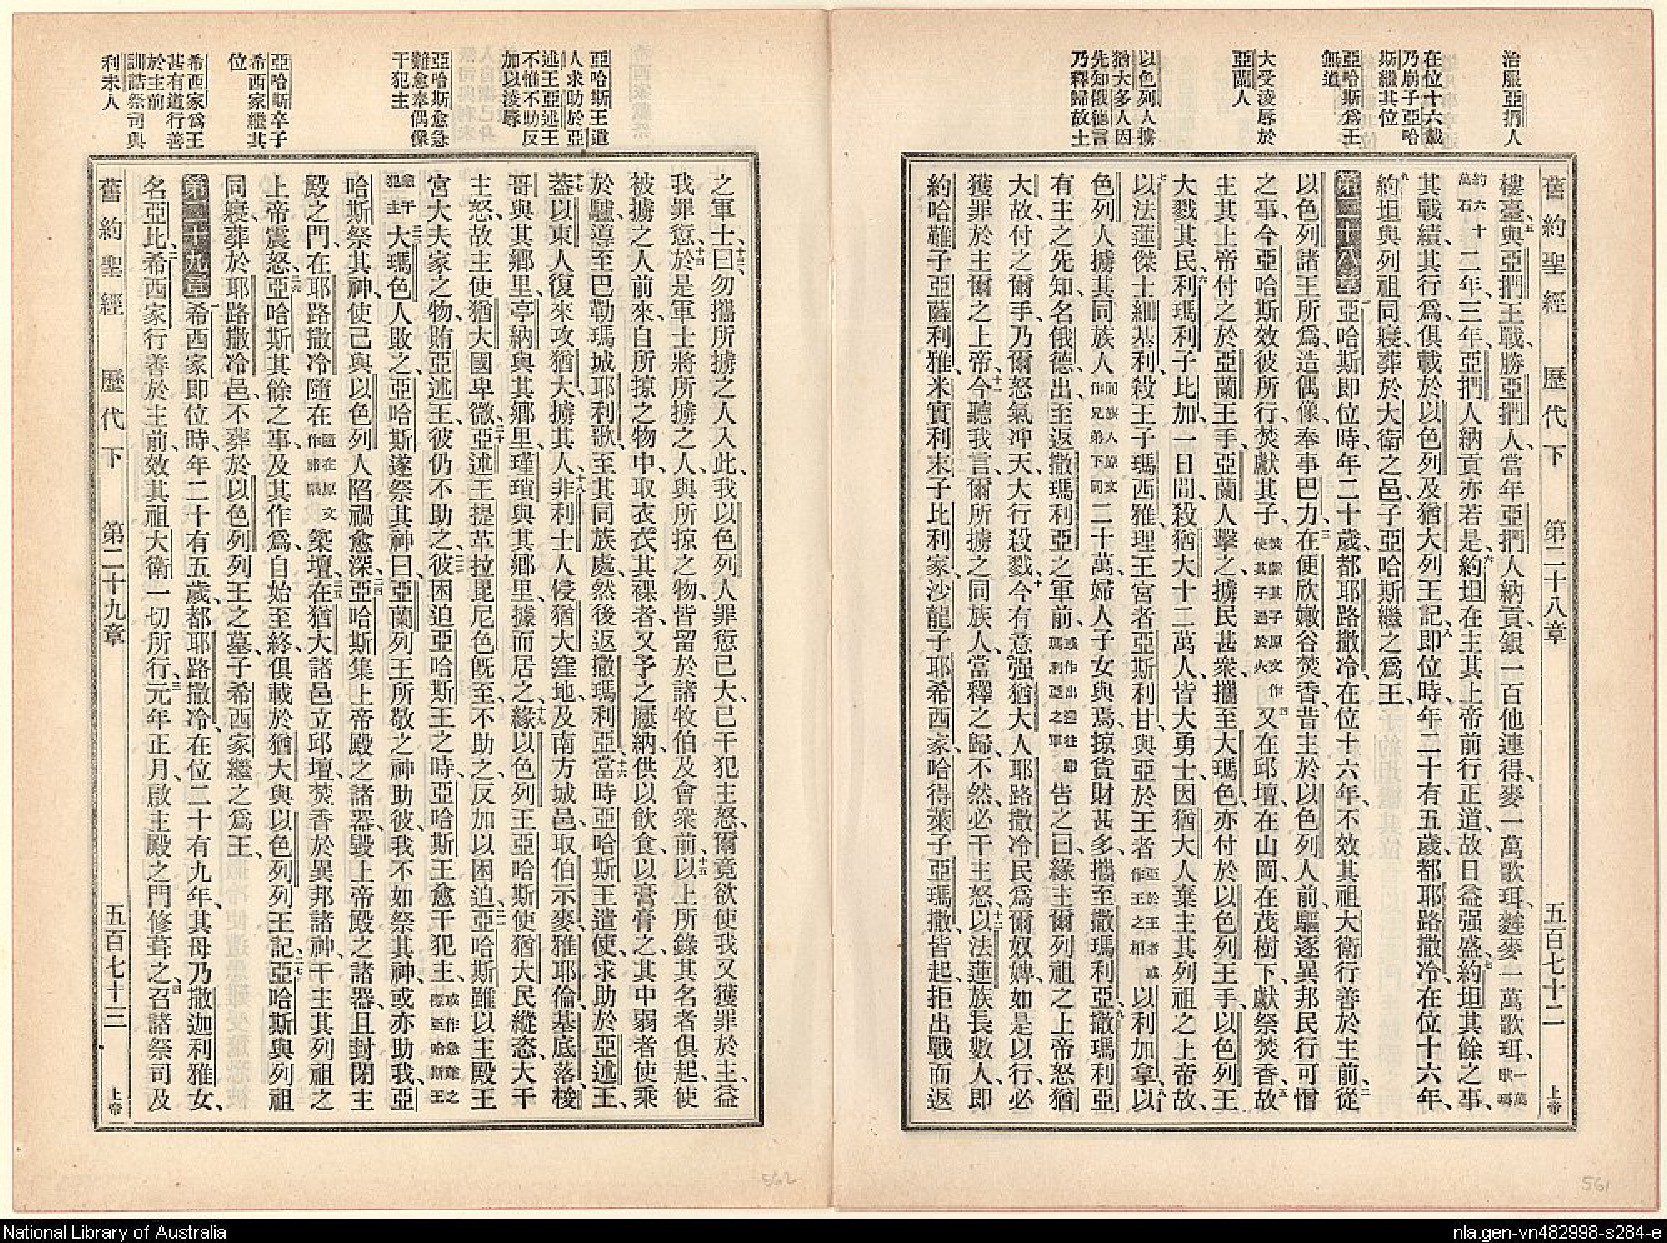 治服亞捫人
在位十六載
乃崩子亞哈
斯繼其位
亞哈斯爲王
無道
大受凌辱於
亞蘭人
以色列人擄
猶大多人因
先知俄德言
乃釋歸故土
舊約聖經 歷代下 第二十八章 五百七十二 上帝
樓臺、與亞捫王戰、勝亞捫人、當年亞捫人納貢、銀一百他連得、麥一萬歌珥、麰麥一萬歌珥、一萬歌珥
約六十萬石 二年三年、亞捫人納貢亦若是、約坦在主其上帝前行正道、故日益强盛、約坦其餘之事、
其戰績、其行爲、俱載於以色列及猶大列王記、卽位時、年二十有五歲、都耶路撒冷、在位十六年、
約坦與列祖同寢、葬於大衛之邑、子亞哈斯繼之爲王、
第二十八章 亞哈斯卽位時、年二十歲、都耶路撒冷、在位十六年、不效其祖大衛行善於主前、從
以色列諸王所爲、造偶像、奉事巴力、在便欣嫩谷焚香、昔主於以色列人前、驅逐異邦民、行可憎
之事、今亞哈斯效彼所行、焚獻其子、焚獻其子原文作使其子過於火 又在邱壇、在山岡、在茂樹下、獻祭焚香、故
主其上帝付之於亞蘭王手、亞蘭人擊之、擄民甚衆、攜至大瑪色、亦付於以色列王手、以色列王
大戮其民、利瑪利子比加、一日間、殺猶大十二萬人、皆大勇士、因猶大人棄主其列祖之上帝故、
以法蓮傑士細基利、殺王子瑪西雅、理王宮者亞斯利甘、與亞於王者、亞於王者或作王之相 以利加拿、以
色列人擄其同族人、同族人原文作兄弟下同 二十萬、婦人子女與焉、掠貨財甚多、攜至撒瑪利亞、撒瑪利亞
有主之先知、名俄德、出至返撒瑪利亞之軍前、或作出迎往撒瑪利亞之軍 告之曰、緣主爾列祖之上帝怒猶
大故、付之爾手、乃爾怒氣冲天、大行殺戮、今有意强猶大人耶路撒冷民、爲爾奴婢、如是以行、必
獲罪於主爾之上帝、今聽我言、爾所擄之同族人、當釋之歸、不然、必干主怒、以法蓮族長數人、卽
約哈難子亞薩利雅、米實利末子比利家、沙龍子耶希西家、哈得萊子亞瑪撒、皆起、拒出戰而返
亞哈斯王遣
人求助於亞
述王亞述王
不惟不助反
加以淩辱
亞哈斯愈急
難愈奉偶像
干犯主
亞哈斯卒子
希西家繼其
位
希西家爲王
甚有道行善
於主前
訓誥祭司與
利未人
之軍士、曰、勿攜所擄之人入此、我以色列人罪愆已大、已干犯主怒、爾竟欲使我又獲罪於主、益
我罪愆、於是軍士將所擄之人、與所掠之物、皆留於諸牧伯及會衆前、以上所錄其名者俱起、使
被擄之人前來、自所掠之物中、取衣衣其裸者、又予之履、納供以飮食、以膏膏之、其中弱者使乘
於驢、導至巴勒瑪城耶利歌、至其同族處、然後返撒瑪利亞、當時亞哈斯王遣使求助於亞述王、
蓋以東人復來攻猶大、擄其人、非利士人侵猶大窪地、及南方城邑、取伯示麥、雅耶倫、基底落、梭
哥與其鄕里、亭納與其鄕里、瑾瑄與其鄕里、據而居之、緣以色列王亞哈斯使猶大民縱恣、大干
主怒、故主使猶大國卑微、亞述王提革拉毘尼色旣至、不助之、反加以困迫、亞哈斯雖以主殿王
宮大夫家之物、賄亞述王、彼仍不助之、彼困迫亞哈斯王之時、亞哈斯王愈干犯主、
犯主 大瑪色人敗之、亞哈斯遂祭其神、曰、亞蘭列王所敬之神助彼、我不如祭其神、或亦助我、亞
哈斯祭其神、使己與以色列人陷禍愈深、亞哈斯集上帝殿之諸器、毀上帝殿之諸器、且封閉主
殿之門、在耶路撒冷隨在 隨在原文作諸隅 築壇、在猶大諸邑立邱壇、焚香於異邦諸神、干主其列祖之
上帝震怒、亞哈斯其餘之事、及其作爲、自始至終、俱載於猶大與以色列列王記、亞哈斯與列祖
同寢、葬於耶路撒冷邑、不葬於以色列列王之墓、子希西家繼之爲王、
第二十九章 希西家卽位時、年二十有五歲、都耶路撒冷、在位二十有九年、其母乃撒迦利雅女、
名亞比、希西家行善於主前、效其祖大衛一切所行、元年正月、啟主殿之門、修葺之、召諸祭司及
舊約聖經 歷代下 第二十九章 五百七十三 上帝
562
561
National Library of Australia
nla.gen-vn482998-s284-e